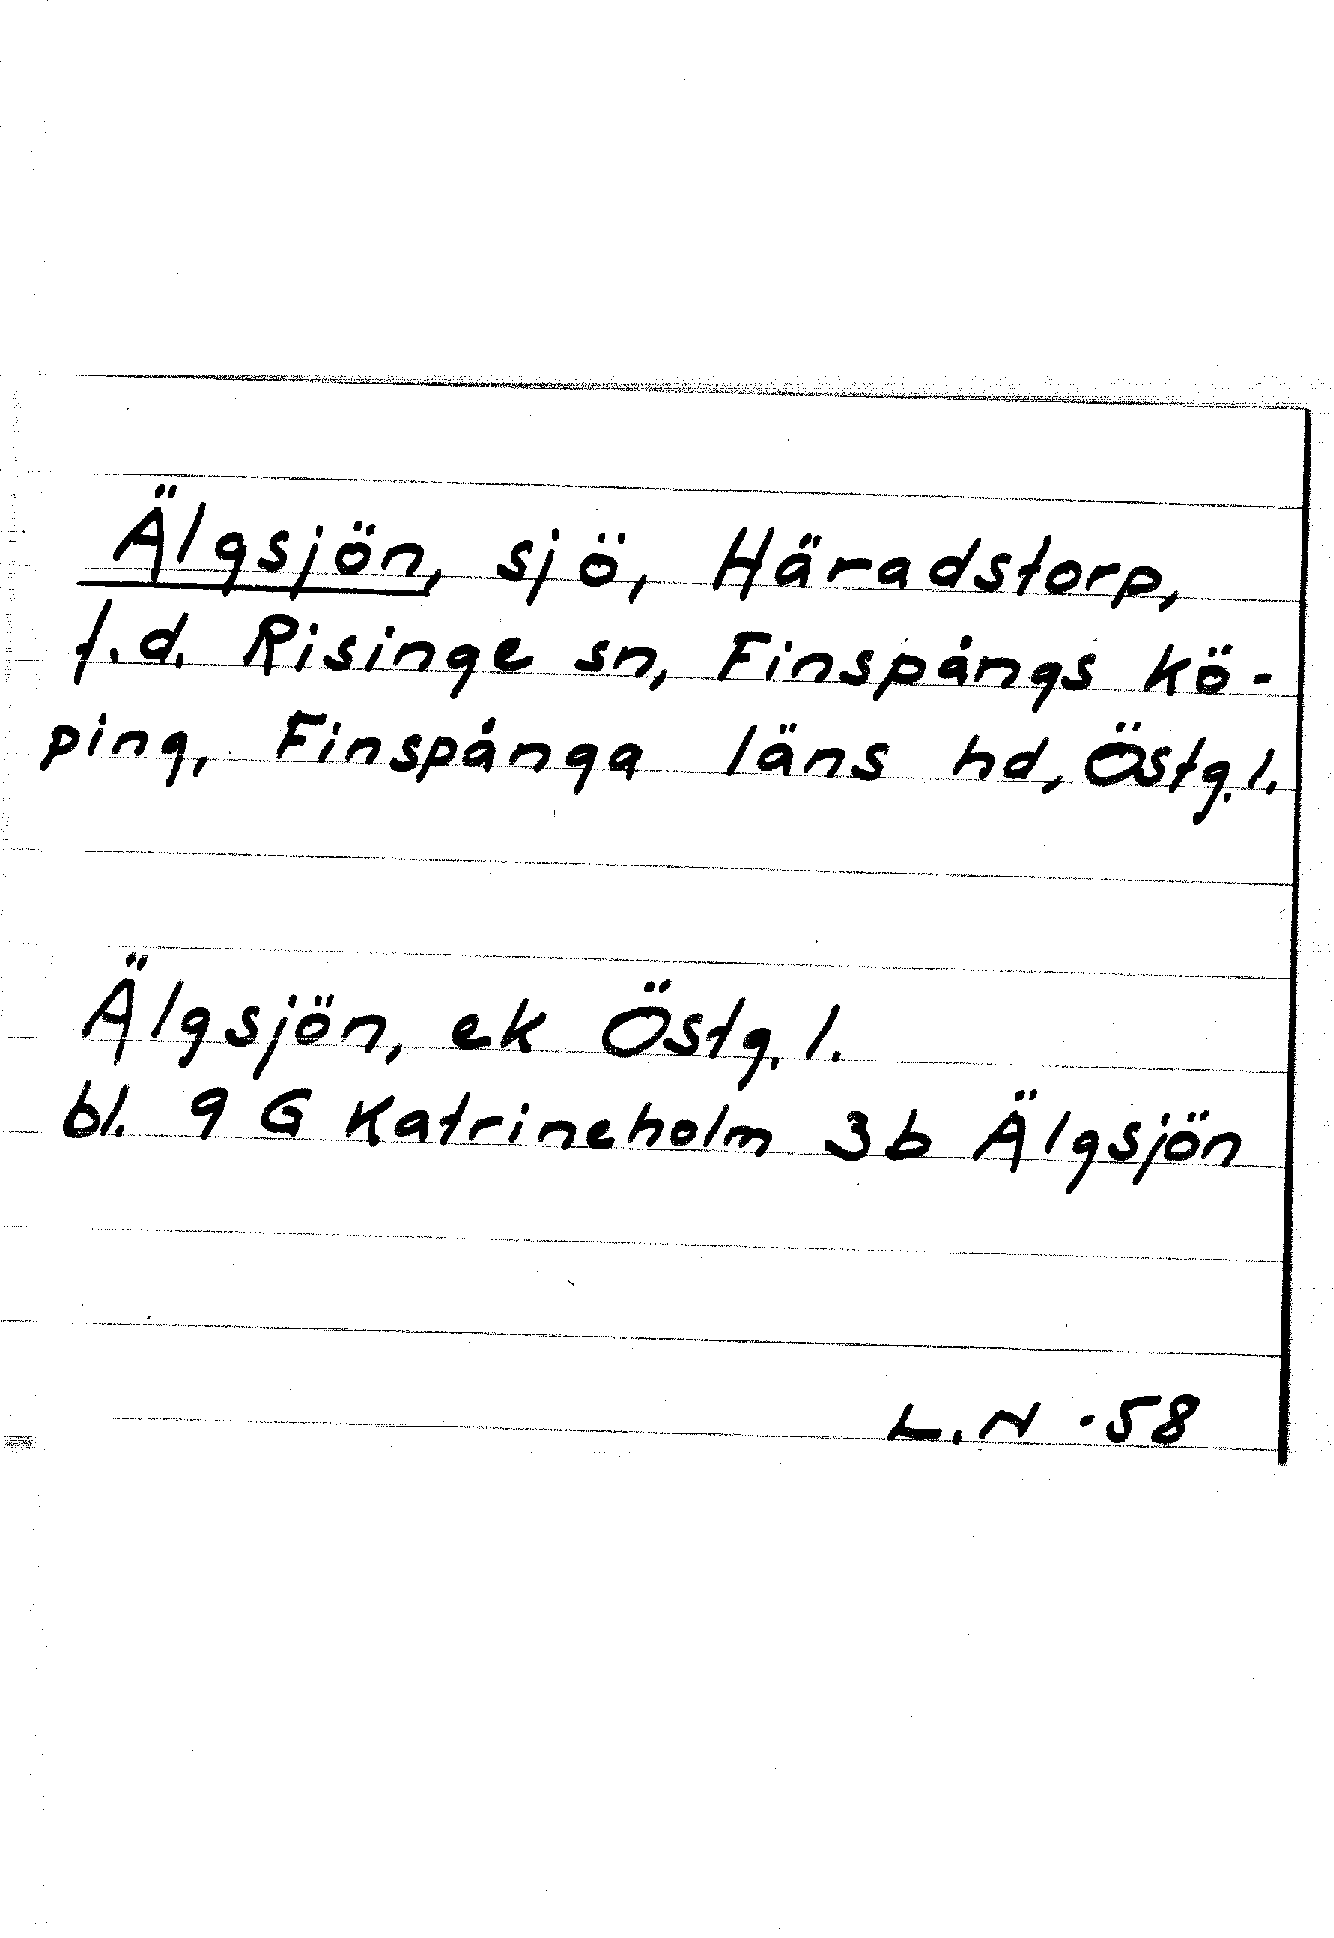 Älgsjön, sjö, Häradstorp,
f.d. Risinge sn, Finspångs kö-
ping, Finspånga läns hd, Östg.l.
Älgsjön, ek Östg.l.
bl. 9 G Katrineholm 3b Älgsjön
L.N -58